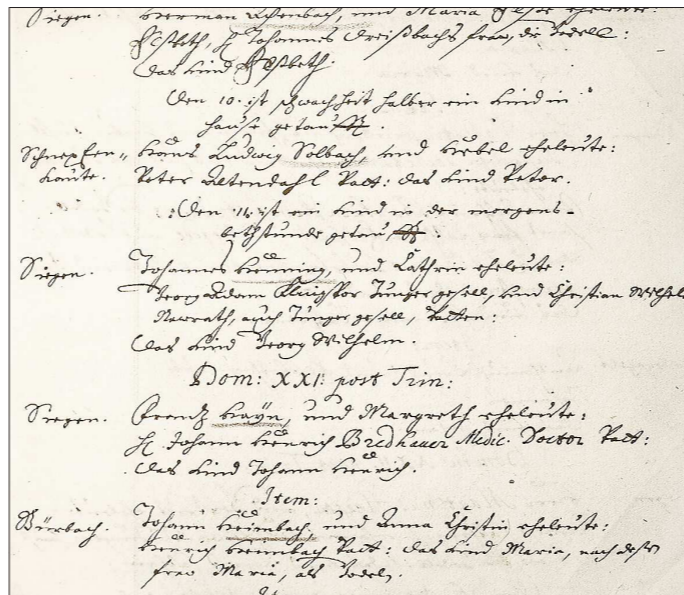 Siegen. Herman Achenbach, und Maria Elsbe eheleute:
Elsbeth, H. Johannes Dreißbachs frau, die Godell:
das Kind Elsbeth.
Den 10. ist schwachheit halber ein Kind in
hause getaufft.
Schnepfen„ Hans Ludwig Solbach, und Hebel eheleute:
Kaute. Peter Altendahl Patt: das Kind Peter.
Den 14. ist ein Kind in der morgens-
bethstunde getaufft.
Siegen. Johannes Henning, und Cathrin eheleute:
Georg Adam Klingspor Junger gesell, und Christian Wilhelm
Nawrath, auch Junger gesell, Patten:
das Kind Georg Wilhelm.
Dom: XXI. post Trin:
Siegen. Frantz Hayn, und Margreth eheleute:
H. Johann Henrich Bredhauer Medic. Doctor Patt:
das Kind Johann Henrich.
Item:
Bürbach. Johann Heimbach, und Anna Christin eheleute:
Henrich Patt: das Kind Maria, nach deßen
frau Maria, als Godeln.